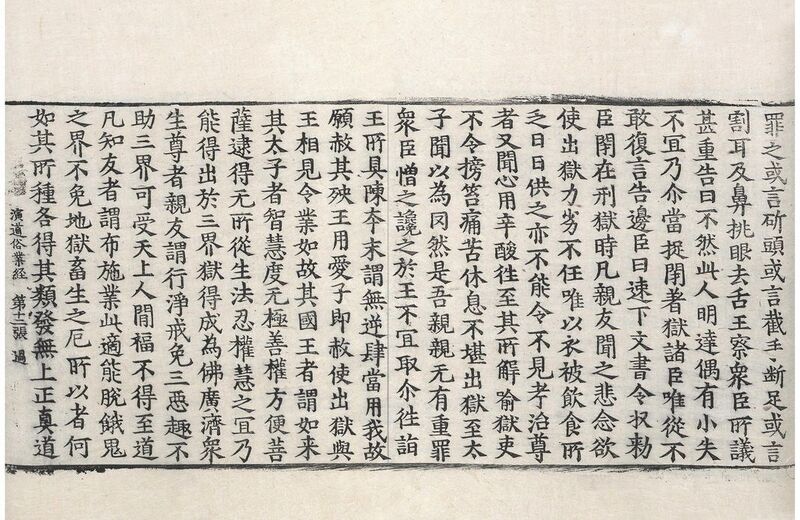 罪之或言斫頭或言截手斷足或言
割耳及鼻挑眼去舌王察衆臣所議
甚重告曰不然此人明達偶有小失
不宜乃尒當捉閇著獄諸臣唯從不
敢復言告邊臣曰速下文書令収勑
臣閇在刑獄時凡親友聞之悲念欲
使出獄力劣不任唯以衣被飲食所
乏日日供之亦不能令不見考治尊
者又聞心用辛酸往至其所解喻獄吏
不令搒笞痛苦休息不堪出獄至太
子聞以為罔然是吾親親无有重罪
衆臣憎之讒之於王不宜取尒徃詣
王所具陳夲末謂無逆肆當用我故
願赦其殃王用愛子即赦使出獄與
王相見令業如故其國王者謂如来
其太子者智慧度无極善權方便菩
薩逮得无所從生法忍權慧之宜乃
能得出於三界獄得成為佛廣濟衆
生尊者親友謂行淨戒免三惡趣不
助三界可受天上人間福不得至道
凡知友者謂布施業此適能脫餓鬼
之界不免地獄畜生之厄所以者何
如其所種各得其類發無上正真道
演道俗業経 第十二張 過